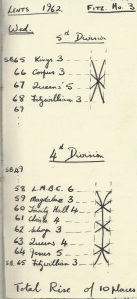 LENTS 1962 FITZ. No. 3
Wed.
5th Division
SB 65 Kings 3
66 Corpus 3
67 Queens' 5
68 Fitzwilliam 3
67
4th Division
SB 47
58 L.M.B.C. 6
59 Magdalene 3
60 Trinity Hall 4
61 Christs 4
62 3
63 Queens 4
64 Jesus 5
SB 65 Fitzwilliam 3
Total Rise of 10 Places